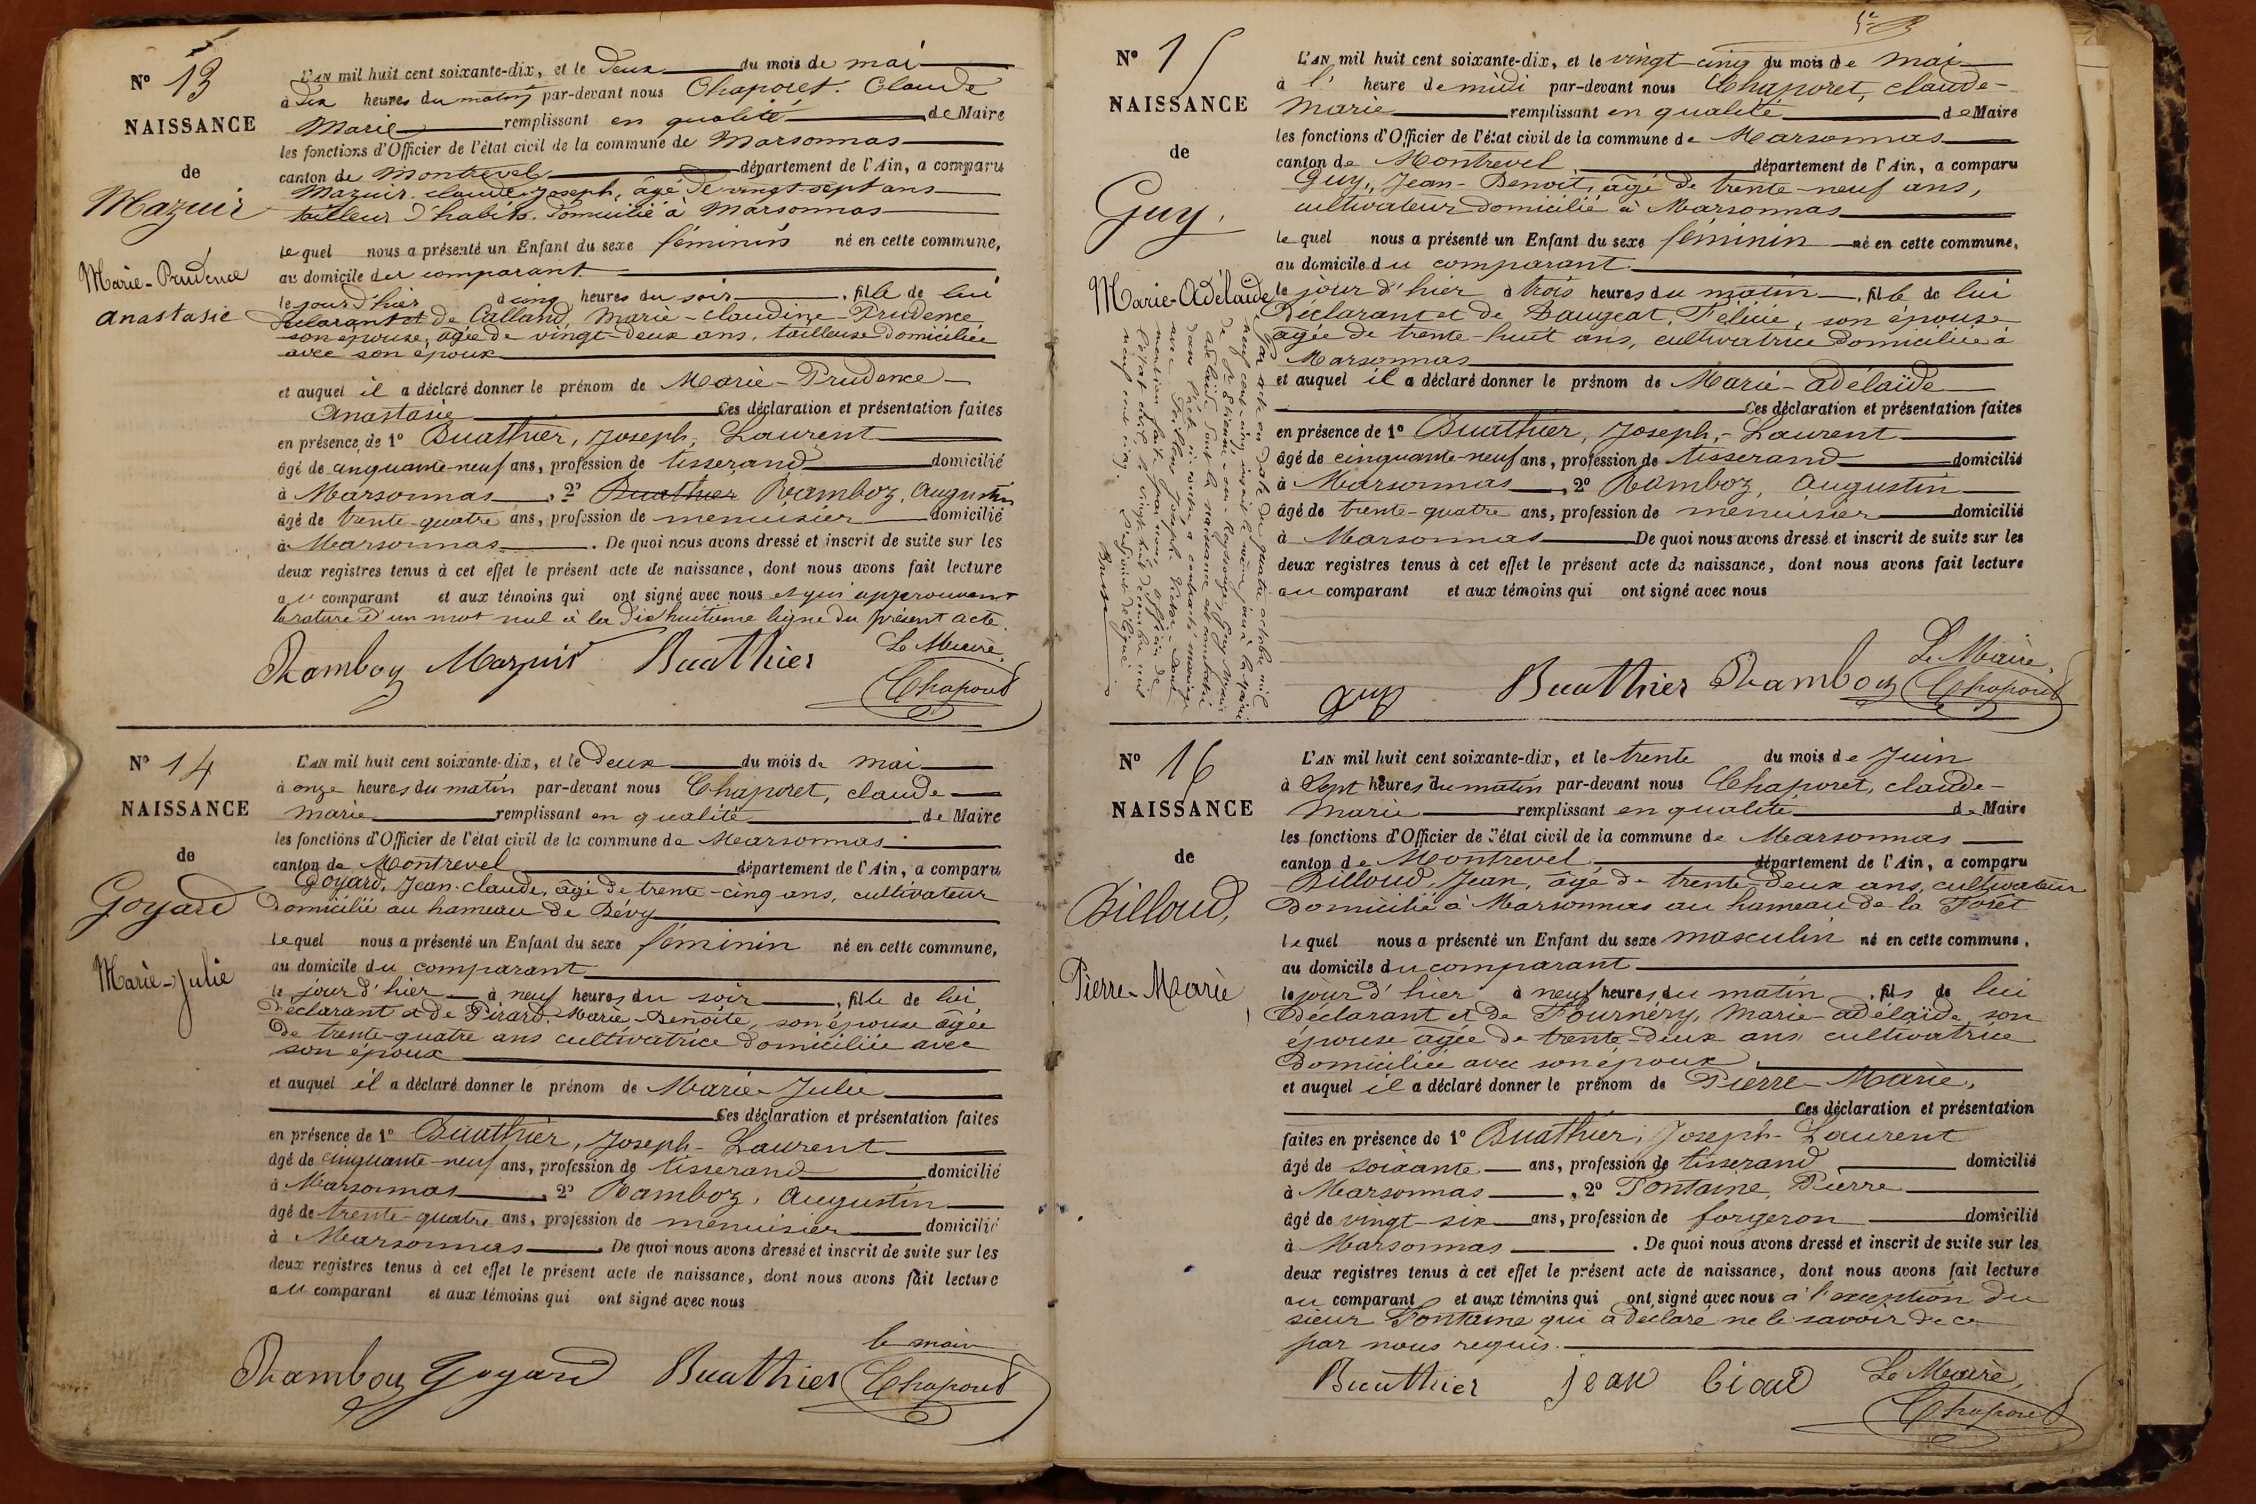 N° 13
NAISSANCE
de
Mazuir
Marie-Prudence
Anastasie
L'AN mil huit cent soixante-dix, et le deux du mois de mai
à dix heures du matin par-devant nous Chaporet. Claude
Marie remplissant en qualité de Maire
les fonctions d'Officier de l'état civil de la commune de Marsonnas
canton de Montrevel département de l'Ain, a comparu
Mazuir. claude-Joseph, âgé de vingt-sept ans
tailleur d'habits. domicilié à Marsonnas
lequel nous a présenté un Enfant du sexe féminin né en cette commune,
au domicile du comparant
le jour d'hier à cinq heures du soir, fille de lui
déclarant et de Calland, Marie-claudine-Prudence
son épouse, âgée de vingt-deux ans, tailleuse domiciliée
avec son époux
et auquel il a déclaré donner le prénom de Marie-Prudence
Anastasie Ces déclaration et présentation faites
en présence de 1° Buathier, Joseph, Laurent
âgé de cinquante-neuf ans, profession de tisserand domicilié
à Marsonnas, 2° Buathier Ramboz, Augustin
âgé de trente-quatre ans, profession de menuisier domicilié
à Marsonnas. De quoi nous avons dressé et inscrit de suite sur les
deux registres tenus à cet effet le présent acte de naissance, dont nous avons fait lecture
au comparant et aux témoins qui ont signé avec nous et qui approuvent
la rature d'un mot nul à la dix huitième ligne du présent acte.
Ramboz Mazuir Buathier Le Maire,
Chaporet
N° 14
NAISSANCE
de
Goyard
Marie-Julie
L'AN mil huit cent soixante-dix, et le deux du mois de mai
à onze heures du matin par-devant nous Chaporet, claude
marie remplissant en qualité de Maire
les fonctions d'Officier de l'état civil de la commune de Marsonnas
canton de Montrevel département de l'Ain, a comparu
Goyard, Jean-claude, âgé de trente-cinq ans, cultivateur
domicilié au hameau de Bévy
lequel nous a présenté un Enfant du sexe féminin né en cette commune,
au domicile du comparant
le jour d'hier à neuf heures du soir, fille de lui
déclarant et de Pirard, Marie-Benoite, son épouse âgée
de trente-quatre ans cultivatrice domiciliée avec
son époux
et auquel il a déclaré donner le prénom de Marie-Julie
Ces déclaration et présentation faites
en présence de 1° Buathier, Joseph-Laurent
âgé de cinquante-neuf ans, profession de tisserand domicilié
à Marsonnas, 2° Ramboz, Augustin
âgé de trente-quatre ans, profession de menuisier domicilié
à Marsonnas. De quoi nous avons dressé et inscrit de suite sur les
deux registres tenus à cet effet le présent acte de naissance, dont nous avons fait lecture
au comparant et aux témoins qui ont signé avec nous
le maire
Ramboz Goyard Buathier Chaporet
N° 15
NAISSANCE
de
Guy,
Marie-Adélaïde
L'AN mil huit cent soixante-dix, et le vingt-cinq du mois de mai
à l' heure de midi par-devant nous Chaporet, claude-
Marie remplissant en qualité de Maire
les fonctions d'Officier de l'état civil de la commune de Marsonnas
canton de Montrevel, département de l'Ain, a comparu
Guy, Jean-Benoit, âgé de trente-neuf ans,
cultivateur domicilié à Marsonnas
lequel nous a présenté un Enfant du sexe féminin né en cette commune,
au domicile du comparant
le jour d'hier à trois heures du matin, fille de lui
Déclarant et de Daugeat, Félicie, son épouse
âgée de trente-huit ans, cultivatrice domiciliée à
Marsonnas
et auquel il a déclaré donner le prénom de Marie-adélaïde
Ces déclaration et présentation faites
en présence de 1° Buathier, Joseph,-Laurent
âgé de cinquante-neuf ans, profession de tisserand domicilié
à Marsonnas, 2° Ramboz, Augustin
âgé de trente-quatre ans, profession de menuisier domicilié
à Marsonnas De quoi nous avons dressé et inscrit de suite sur les
deux registres tenus à cet effet le présent acte de naissance, dont nous avons fait lecture
au comparant et aux témoins qui ont signé avec nous
Le Maire,
guy Buathier Ramboz Chaporet
Par acte en date du quatre octobre mil
neuf cent cinq
de St Etienne-sur-Reyssouze, Guy Marie
Adélaïde dont la naissance est constatée
dans l'acte ci-contre, a contracté mariage
avec Joseph Victor. Dont
mention faite par nous, officier de
l'état civil le vingt huit décembre mil
neuf cent cinq.
N° 16
NAISSANCE
de
Billoud,
Pierre-Marie
L'AN mil huit cent soixante-dix, et le trente du mois de Juin
à Sept heures du matin par-devant nous Chaporet, claude-
Marie remplissant en qualité de Maire
les fonctions d'Officier de l'état civil de la commune de Marsonnas
canton de Montrevel département de l'Ain, a comparu
Billoud, Jean, âgé de trente-deux ans, cultivateur
domicilié à Marsonnas au hameau de la Forêt
lequel nous a présenté un Enfant du sexe masculin né en cette commune,
au domicile du comparant
le jour d'hier à neuf heures du matin, fils de lui
déclarant et de Fournéry, Marie-adélaïde, son
épouse âgée de trente-deux ans cultivatrice
domiciliée avec son époux
et auquel il a déclaré donner le prénom de Pierre-Marie,
Ces déclaration et présentation
faites en présence de 1° Buathier, Joseph-Laurent
âgé de soixante ans, profession de tisserand domicilié
à Marsonnas, 2° Fontaine, Pierre
âgé de vingt-six ans, profession de forgeron domicilié
à Marsonnas. De quoi nous avons dressé et inscrit de suite sur les
deux registres tenus à cet effet le présent acte de naissance, dont nous avons fait lecture
au comparant et aux témoins qui ont signé avec nous à l'exception du
sieur Fontaine qui a déclaré ne le savoir de ce
par nous requis.
Buathier Jean Le Maire,
Chaporet